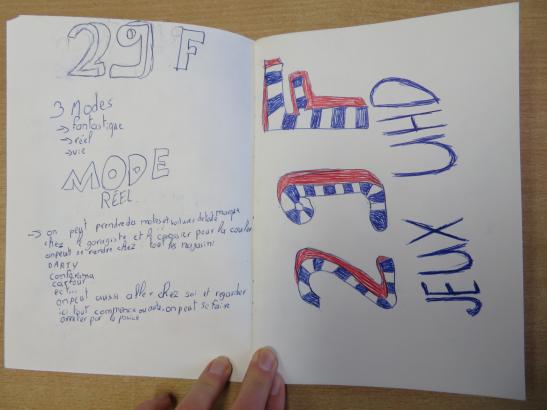 29 F
3 Modes
→ fantastique
→ réel
→ vie
MODE
RÉEL
→ on peut prendre da motos et voitures de toute marque
chez le garagiste et le carossier pour la couleur
on peut se rendre chez tout les magasins
DARTY
conforama
carfour
ect...
on peut aussi aller chez soi et regarder
ici tout commence on peut se faire
arreter par la police
29 F
JEUX UHD